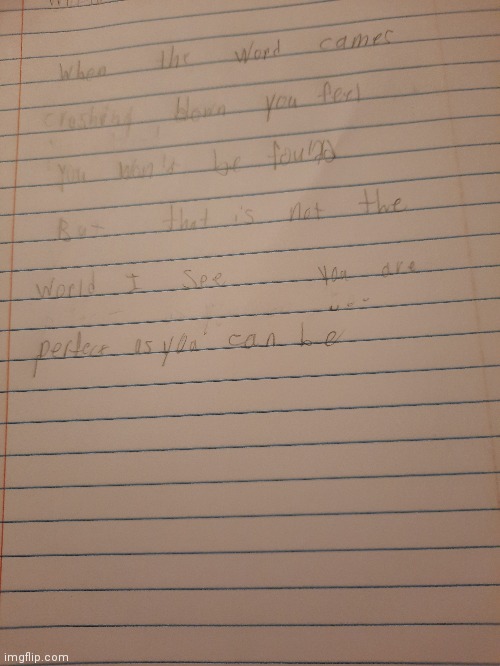 When the Word cames
crashing down you feel
you won't be found
But that is not the
World I See you are
perfect as you can be
imgflip.com